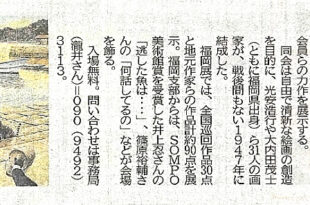 会員らの力作を展示する。
　同会は自由で清新な絵画の創造
を目的に、光安浩行や大内田茂士
（ともに福岡県出身）ら31人の画
家が、戦後間もない1947年に
結成した。
　福岡展では、全国巡回作品30点
と地元作家らの作品計約90点を展
示。福岡支部からは、SOMPO
美術館賞を受賞した井上忍さんの
「逃した魚は……」、篠原輔さ
んの「何話してるの」などが会場
を飾る。
　入場無料。問い合わせは事務局
（龍井さん）＝090（9492）
3113。